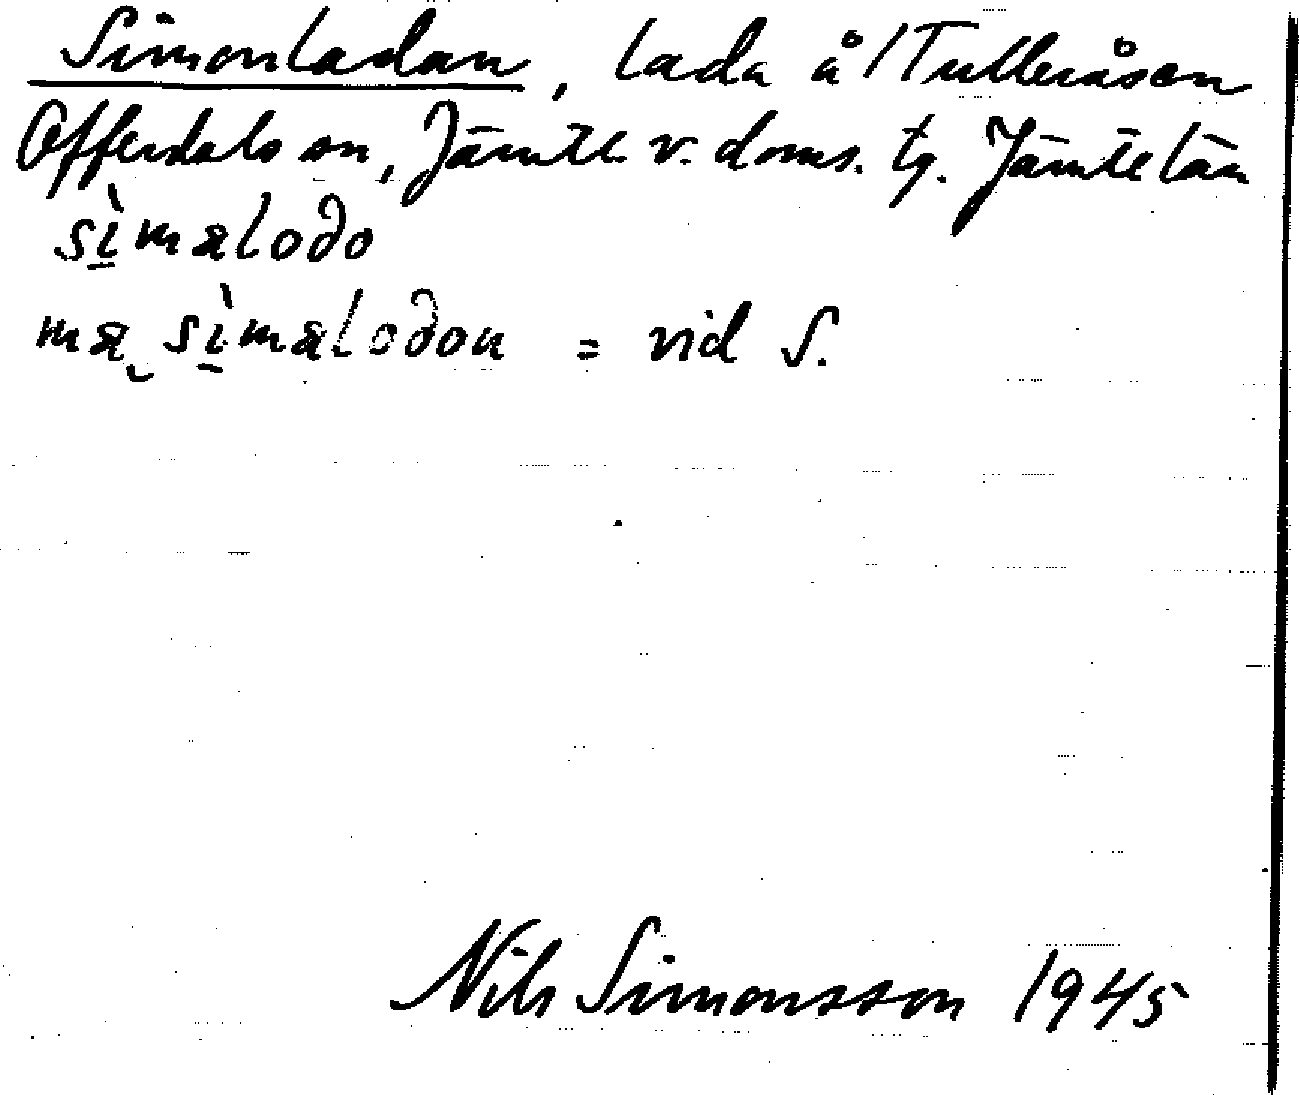 Simonladan, lada å /Tulleråsen
Offerdals sn, Jämtl. v. doms. tg. Jämtelän
sìmalodo
ma sìmalodon = vid S.
Nils Simonsson 1945